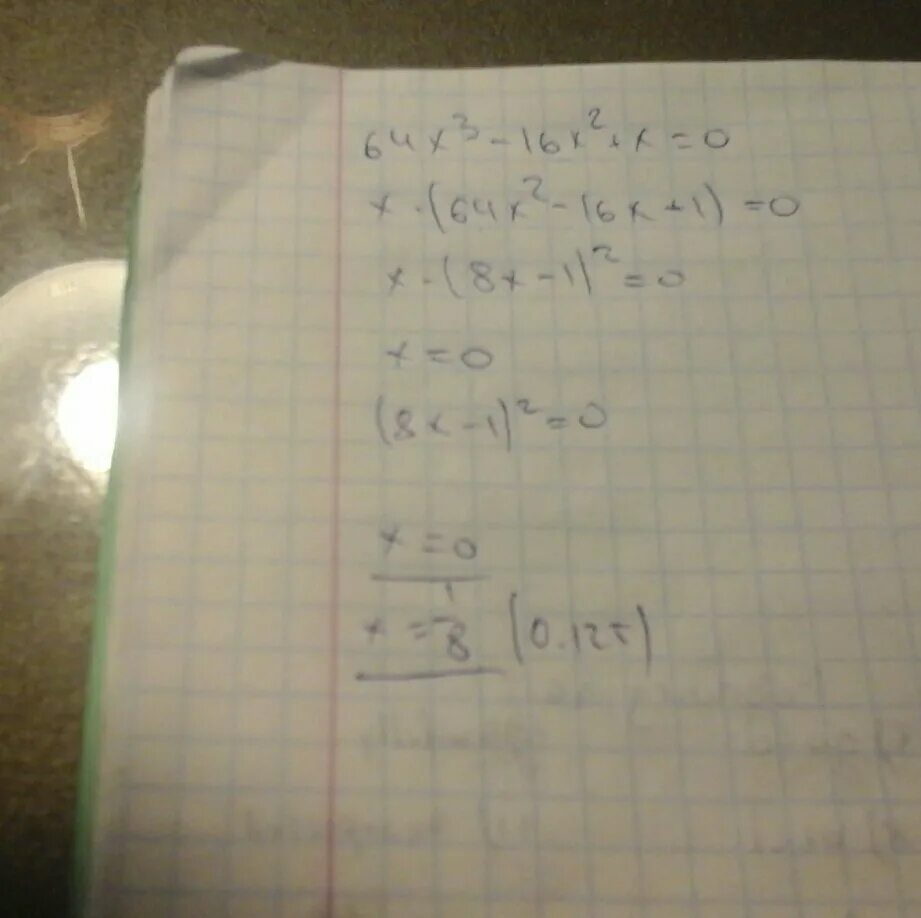 64x³ - 16x² + x = 0
x · (64x² - 16x + 1) = 0
x · (8x - 1)² = 0
x = 0
(8x - 1)² = 0
x = 0
x = 1/8 (0.125)